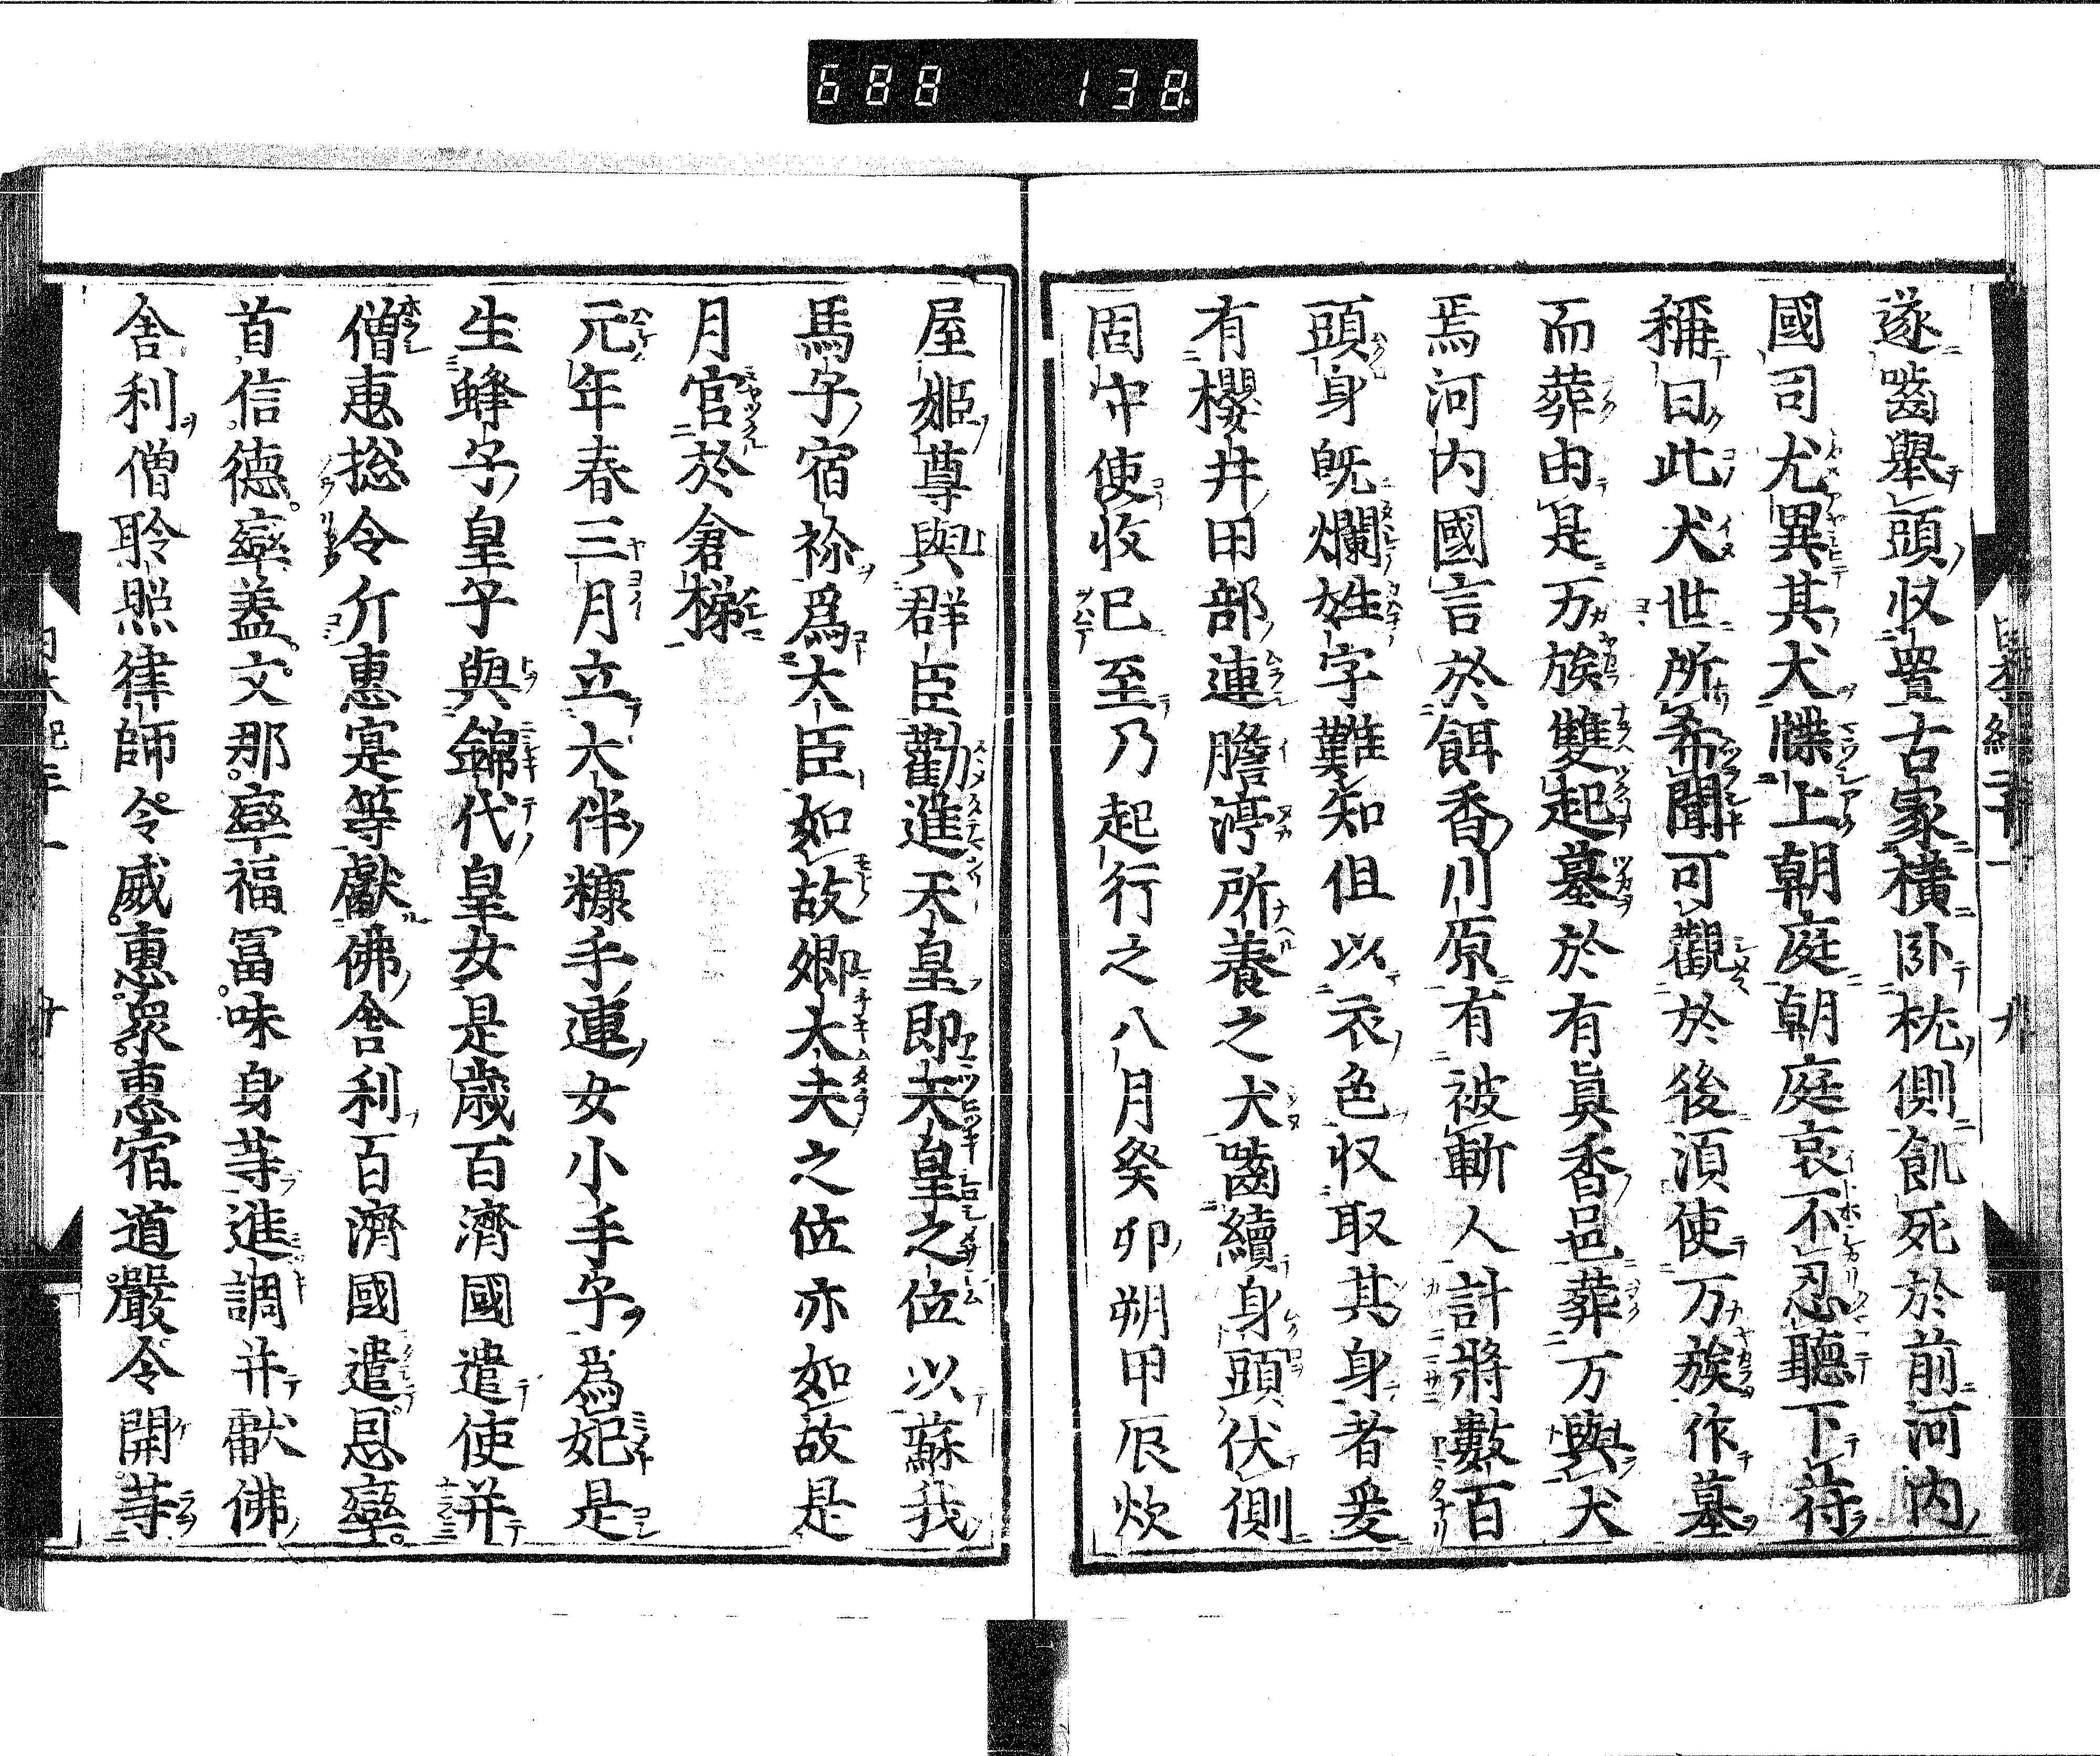 688 138
遂嚙舉頭収置古冢横臥枕側飢死於前河内
國司尤異其犬牒上朝庭朝庭哀不忍聽下苻
稱曰此犬世所希聞可觀於後湏使万族作墓
而葬由是万族雙起墓於有眞香邑葬万與犬
焉河内國言於餌香川原有被斬人計將數百
頭身既爛姓字難知但以衣色収取其身者爰
有櫻井田部連膽渟所養之犬嚙續身頭伏側
固守使收已至乃起行之八月癸卯朔甲辰炊
屋姬尊與群臣勸進天皇即天皇之位以蘇我
馬子宿祢爲大臣如故卿大夫之位亦如故是
月宮於倉梯
元年春三月立大伴糠手連女小手子爲妃是
生蜂子皇子與錦代皇女是歳百濟國遣使并
僧惠捴令斤惠寔等獻佛舎利百濟國遣恩率
首信德率盖文那率福冨味身等進調并獻佛
舎利僧聆照律師令威惠衆惠宿道嚴令開等